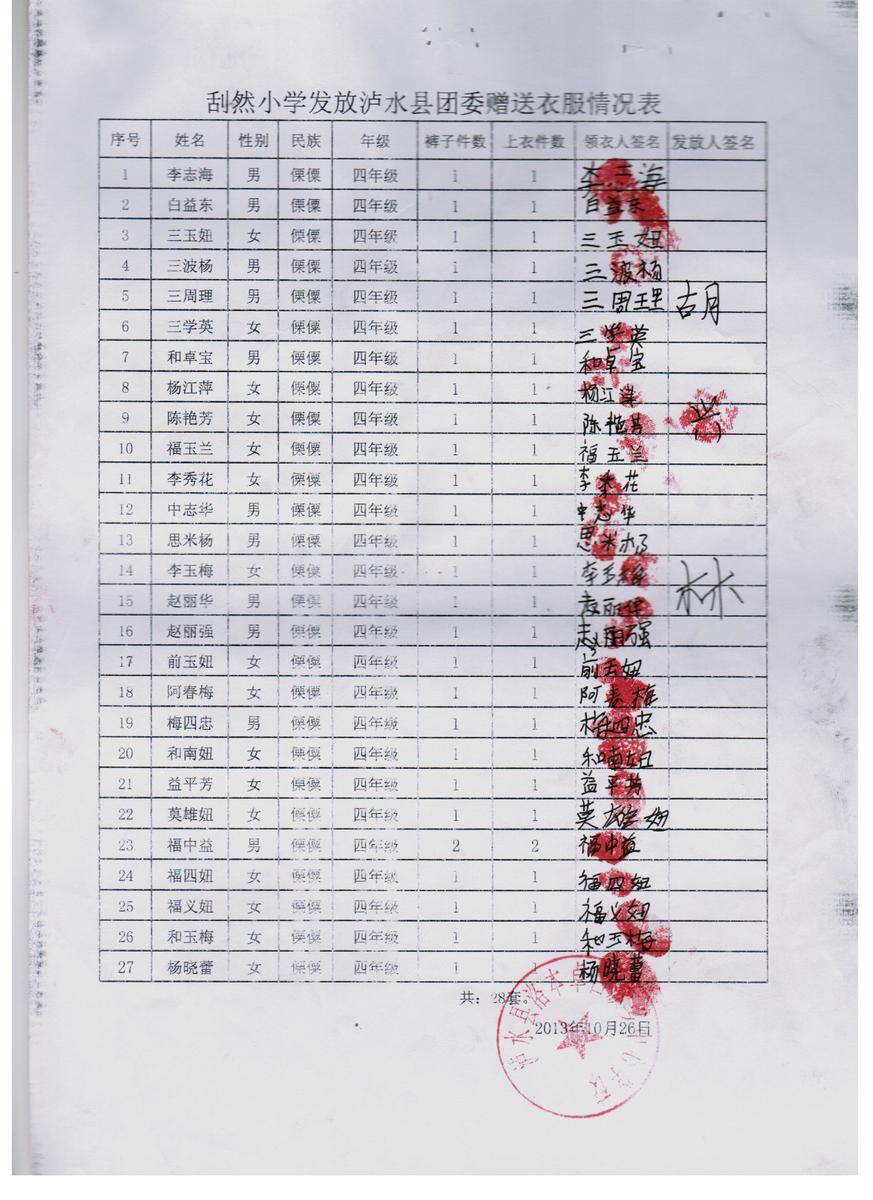 刮然小学发放泸水县团委赠送衣服情况表
序号 姓名 性别 民族 年级 裤子件数 上衣件数 领衣人签名 发放人签名
1 李志海 男 傈僳 四年级 1 1 李三海
2 白益东 男 傈僳 四年级 1 1 白益东
3 三玉妞 女 傈僳 四年级 1 1 三玉妞
4 三波杨 男 傈僳 四年级 1 1 三波杨
5 三周理 男 傈僳 四年级 1 1 三周理 胡
6 三学英 女 傈僳 四年级 1 1 三学英
7 和卓宝 男 傈僳 四年级 1 1 和卓宝
8 杨江萍 女 傈僳 四年级 1 1 杨江萍
9 陈艳芳 女 傈僳 四年级 1 1 陈艳芳
10 福玉兰 女 傈僳 四年级 1 1 福玉兰
11 李秀花 女 傈僳 四年级 1 1 李秀花
12 中志华 男 傈僳 四年级 1 1 中志华
13 思米杨 男 傈僳 四年级 1 1 思米杨
14 李玉梅 女 傈僳 四年级 1 1 李玉梅
15 赵丽华 男 傈僳 四年级 1 1 赵丽华 林
16 赵丽强 男 傈僳 四年级 1 1 赵丽强
17 前玉妞 女 傈僳 四年级 1 1 前玉妞
18 阿春梅 女 傈僳 四年级 1 1 阿春梅
19 梅四忠 男 傈僳 四年级 1 1 梅四忠
20 和南妞 女 傈僳 四年级 1 1 和南妞
21 益平芳 女 傈僳 四年级 1 1 益平芳
22 莫雄妞 女 傈僳 四年级 1 1 英雄妞
23 福中益 男 傈僳 四年级 2 2 福中益
24 福四妞 女 傈僳 四年级 1 1 福四妞
25 福义妞 女 傈僳 四年级 1 1 福义妞
26 和玉梅 女 傈僳 四年级 1 1 和玉梅
27 杨晓蕾 女 傈僳 四年级 1 1 杨晓蕾
共：28套。
2013年10月26日
泸水县洛本卓